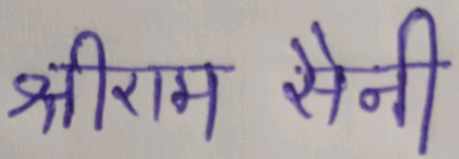 श्रीराम सैनी